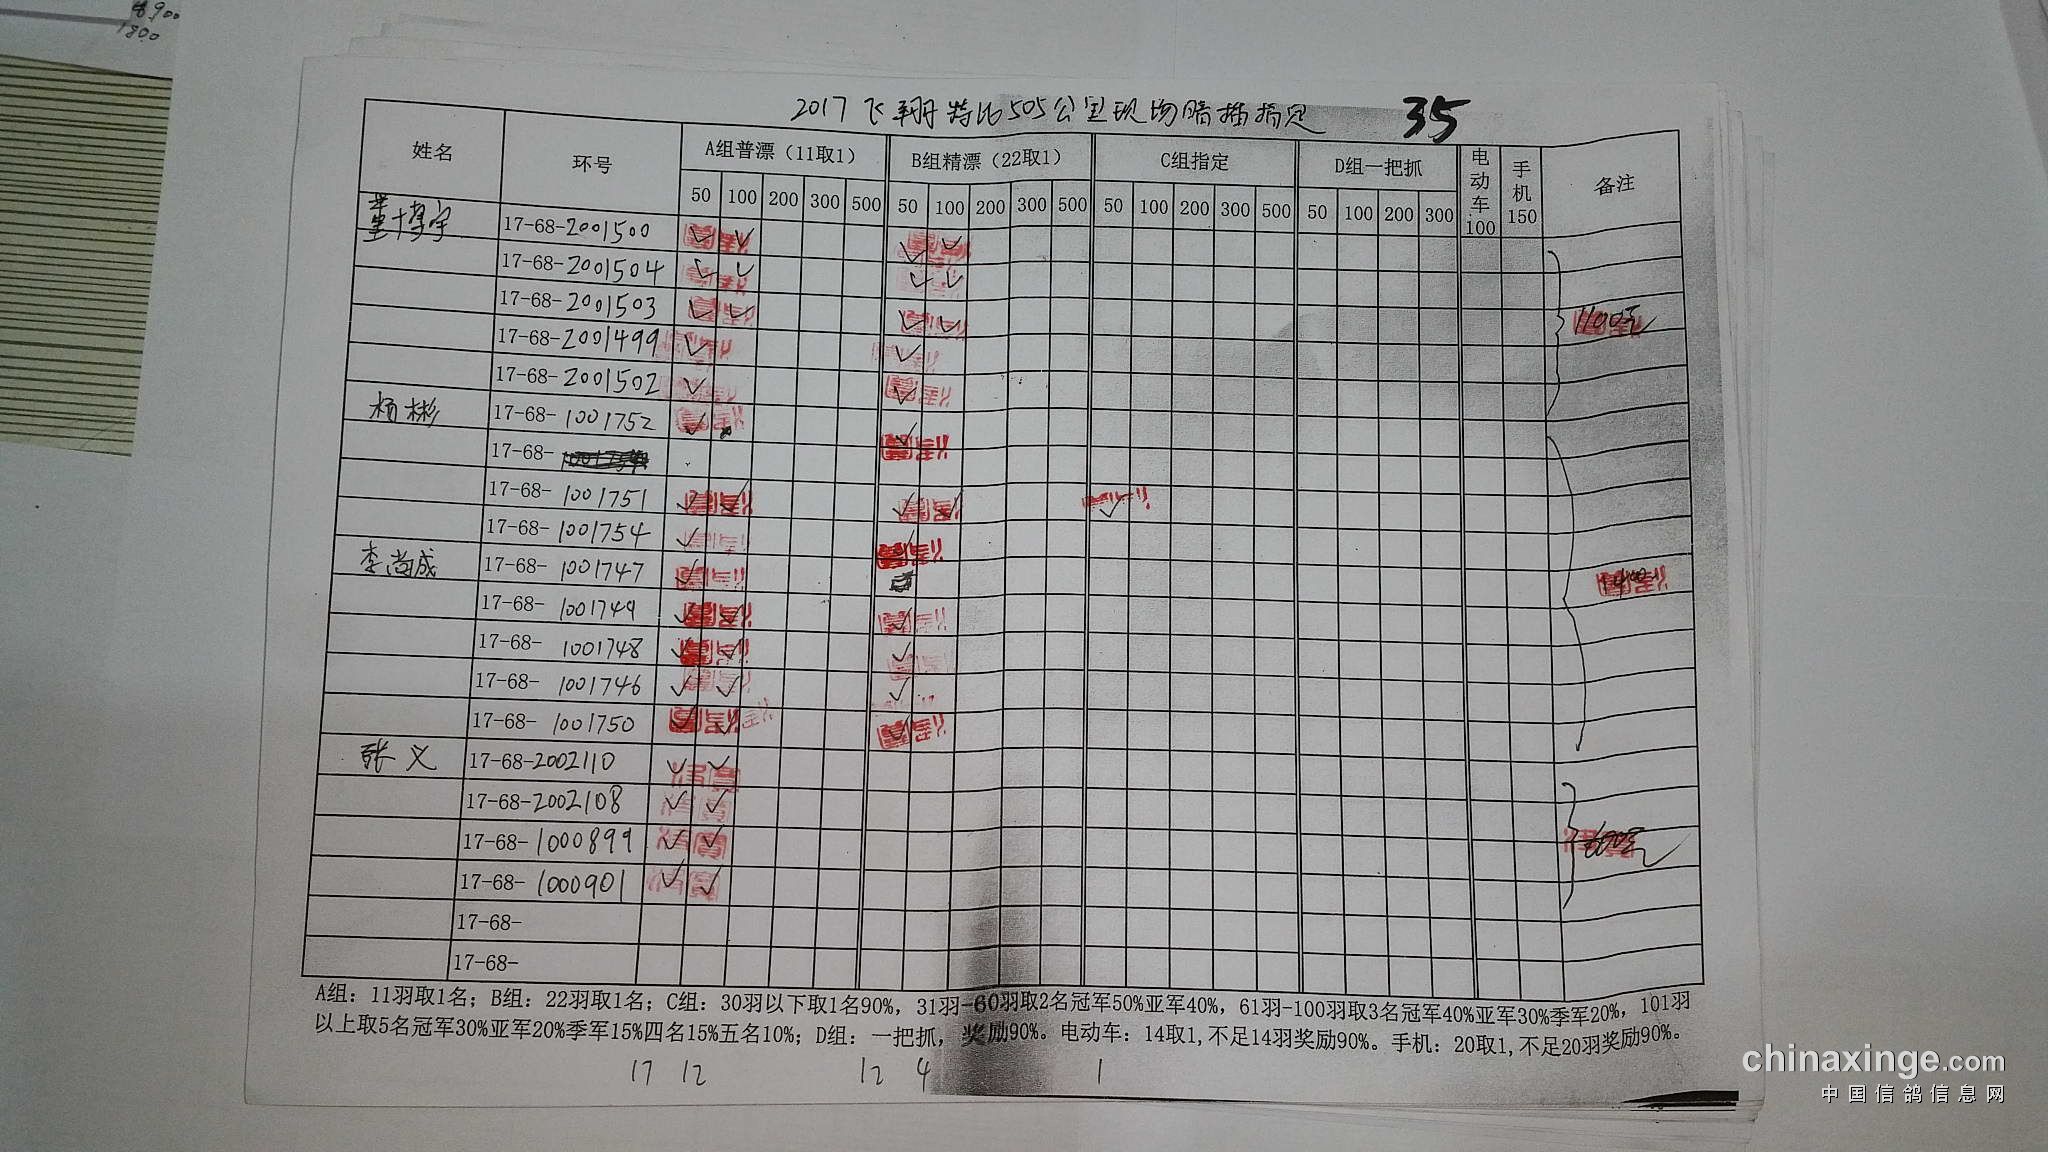 1800
2017飞翔特比505公里现场暗插指定 35
姓名 环号 A组普漂（11取1） B组精漂（22取1） C组指定 D组一把抓 电动车100 手机150 备注
50 100 200 300 500 50 100 200 300 500 50 100 200 300 500 50 100 200 300
董博宇 17-68-2001500 ✓ ✓ ✓ ✓
17-68-2001504 ✓ ✓ ✓ ✓
17-68-2001503 ✓ ✓ ✓ ✓ 1100元
17-68-2001499 ✓ ✓
17-68-2001502 ✓ ✓
杨彬 17-68-1001752 ✓ ✓
17-68-
17-68-1001751 ✓ ✓ ✓ ✓ ✓
17-68-1001754 ✓ ✓
李尚成 17-68-1001747 ✓
17-68-1001749 ✓ ✓ ✓
17-68-1001748 ✓ ✓ ✓
17-68-1001746 ✓ ✓ ✓
17-68-1001750 ✓ ✓ ✓
张义 17-68-2002110 ✓ ✓
17-68-2002108 ✓ ✓
17-68-1000899 ✓ ✓ 600元
17-68-1000901 ✓ ✓
17-68-
17-68-
A组：11羽取1名；B组：22羽取1名；C组：30羽以下取1名90%，31羽-60羽取2名冠军50%亚军40%，61羽-100羽取3名冠军40%亚军30%季军20%，101羽
以上取5名冠军30%亚军20%季军15%四名15%五名10%；D组：一把抓，奖励90%。电动车：14取1,不足14羽奖励90%。手机：20取1,不足20羽奖励90%。
17 12 12 4 1
chinaxinge.com
中国信鸽信息网